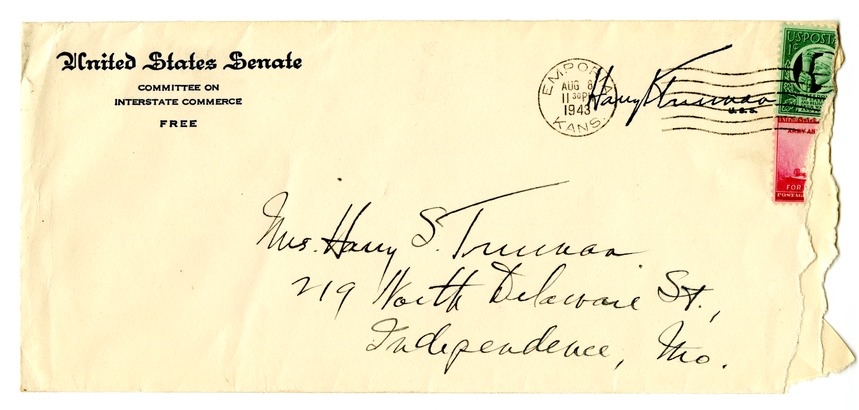 United States Senate
COMMITTEE ON
INTERSTATE COMMERCE
FREE
EMPORIA
AUG 8
11 30 P
1943
KANS.
Harry S Truman
U.S.S.
U.S. POSTA
1¢
ARMY AN
FOR
POSTAG
Mrs. Harry S. Truman
219 North Delaware St.,
Independence, Mo.